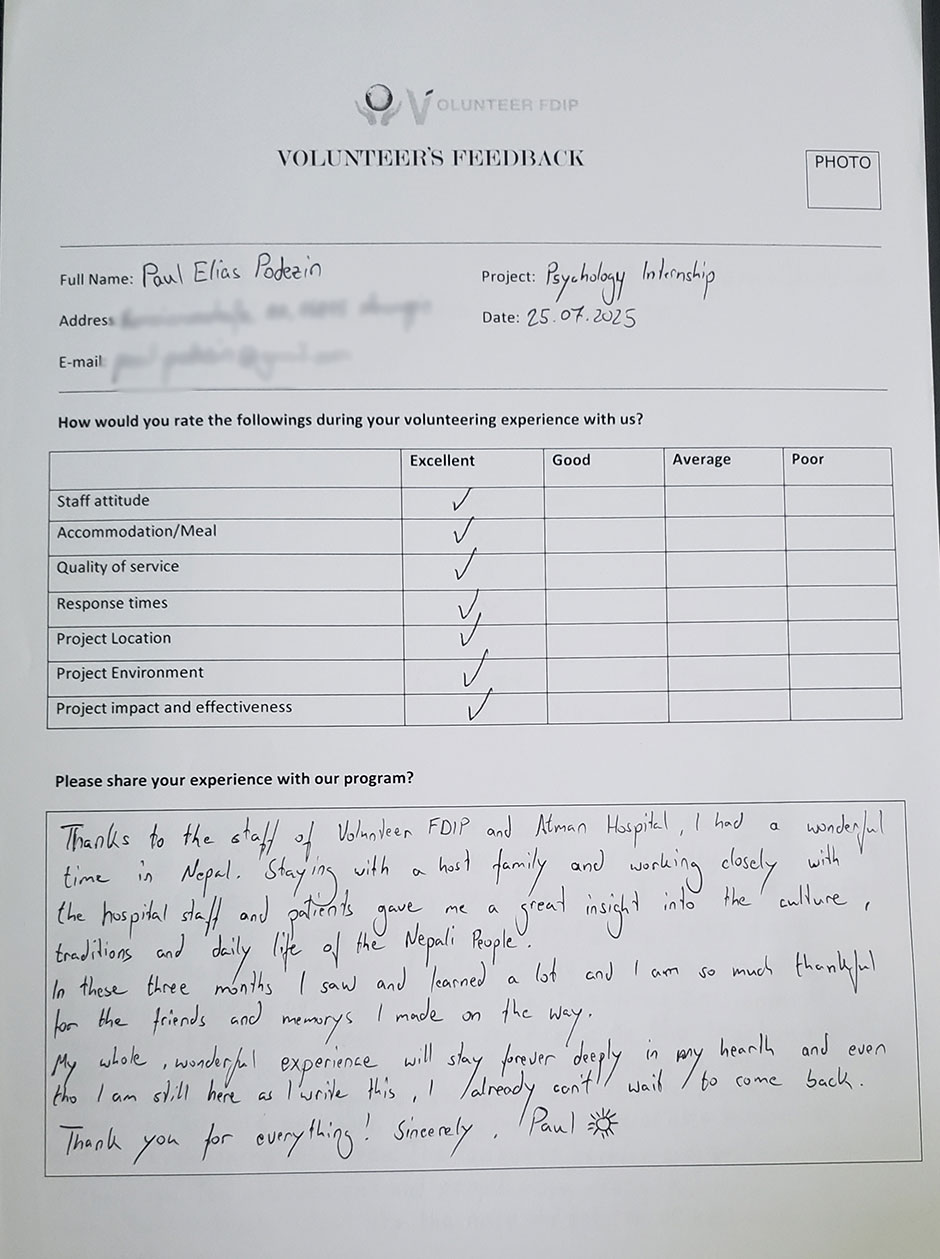 VOLUNTEER FDIP
VOLUNTEER'S FEEDBACK
PHOTO
Full Name: Paul Elias Podezin
Project: Psychology Internship
Address
Date: 25.07.2025
E-mail
How would you rate the followings during your volunteering experience with us?
Excellent Good Average Poor
Staff attitude ✓
Accommodation/Meal ✓
Quality of service ✓
Response times ✓
Project Location ✓
Project Environment ✓
Project impact and effectiveness ✓
Please share your experience with our program?
Thanks to the staff of Volunteer FDIP and Atman Hospital, I had a wonderful
time in Nepal. Staying with a host family and working closely with
the hospital staff and patients gave me a great insight into the culture,
traditions and daily life of the Nepali People.
In these three months I saw and learned a lot and I am so much thankful
for the friends and memorys I made on the way.
My whole, wonderful experience will stay forever deeply in my hearth and even
tho I am still here as I write this, I already can't wait to come back.
Thank you for everything! Sincerely, Paul